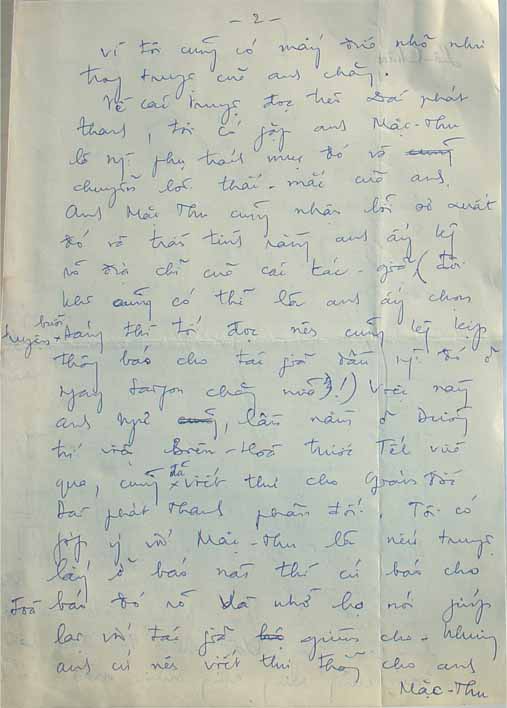 - 2 -
vì tôi cũng có mấy đứa nhỏ như
trong trung của anh chăng.
Về cái trung đọc trên Đài phát
thanh, tôi có gặp anh Mặc-Thu
là ng. phụ trách mục đó và
chuyển lời thắc-mắc của anh.
Anh Mặc Thu cũng nhận lỗi sơ xuất
đó và trần tình rằng anh ấy kg
rõ địa chỉ của các tác-giả (đôi
khi cũng có thể là anh ấy chọn
truyện buổi sáng thì tối đọc nên cũng kg kịp
thông báo cho tác giả dẫu ng. đó ở
ngay Saigon chăng nữa!) Việc này
anh Ngữ, lần nằm ở Dưỡng
trí viện Biên-Hoà trước Tết vừa
qua, cũng đã viết thư cho Giám đốc
Đài phát thanh phản đối. Tôi có
góp ý với Mặc-Thu là nếu trung
lấy ở báo nào thì cứ báo cho
toà báo đó rõ và nhờ họ nói giúp
lại với tác giả giùm cho. Nhưng
anh cứ nên viết thư thẳng cho anh
Mặc-Thu